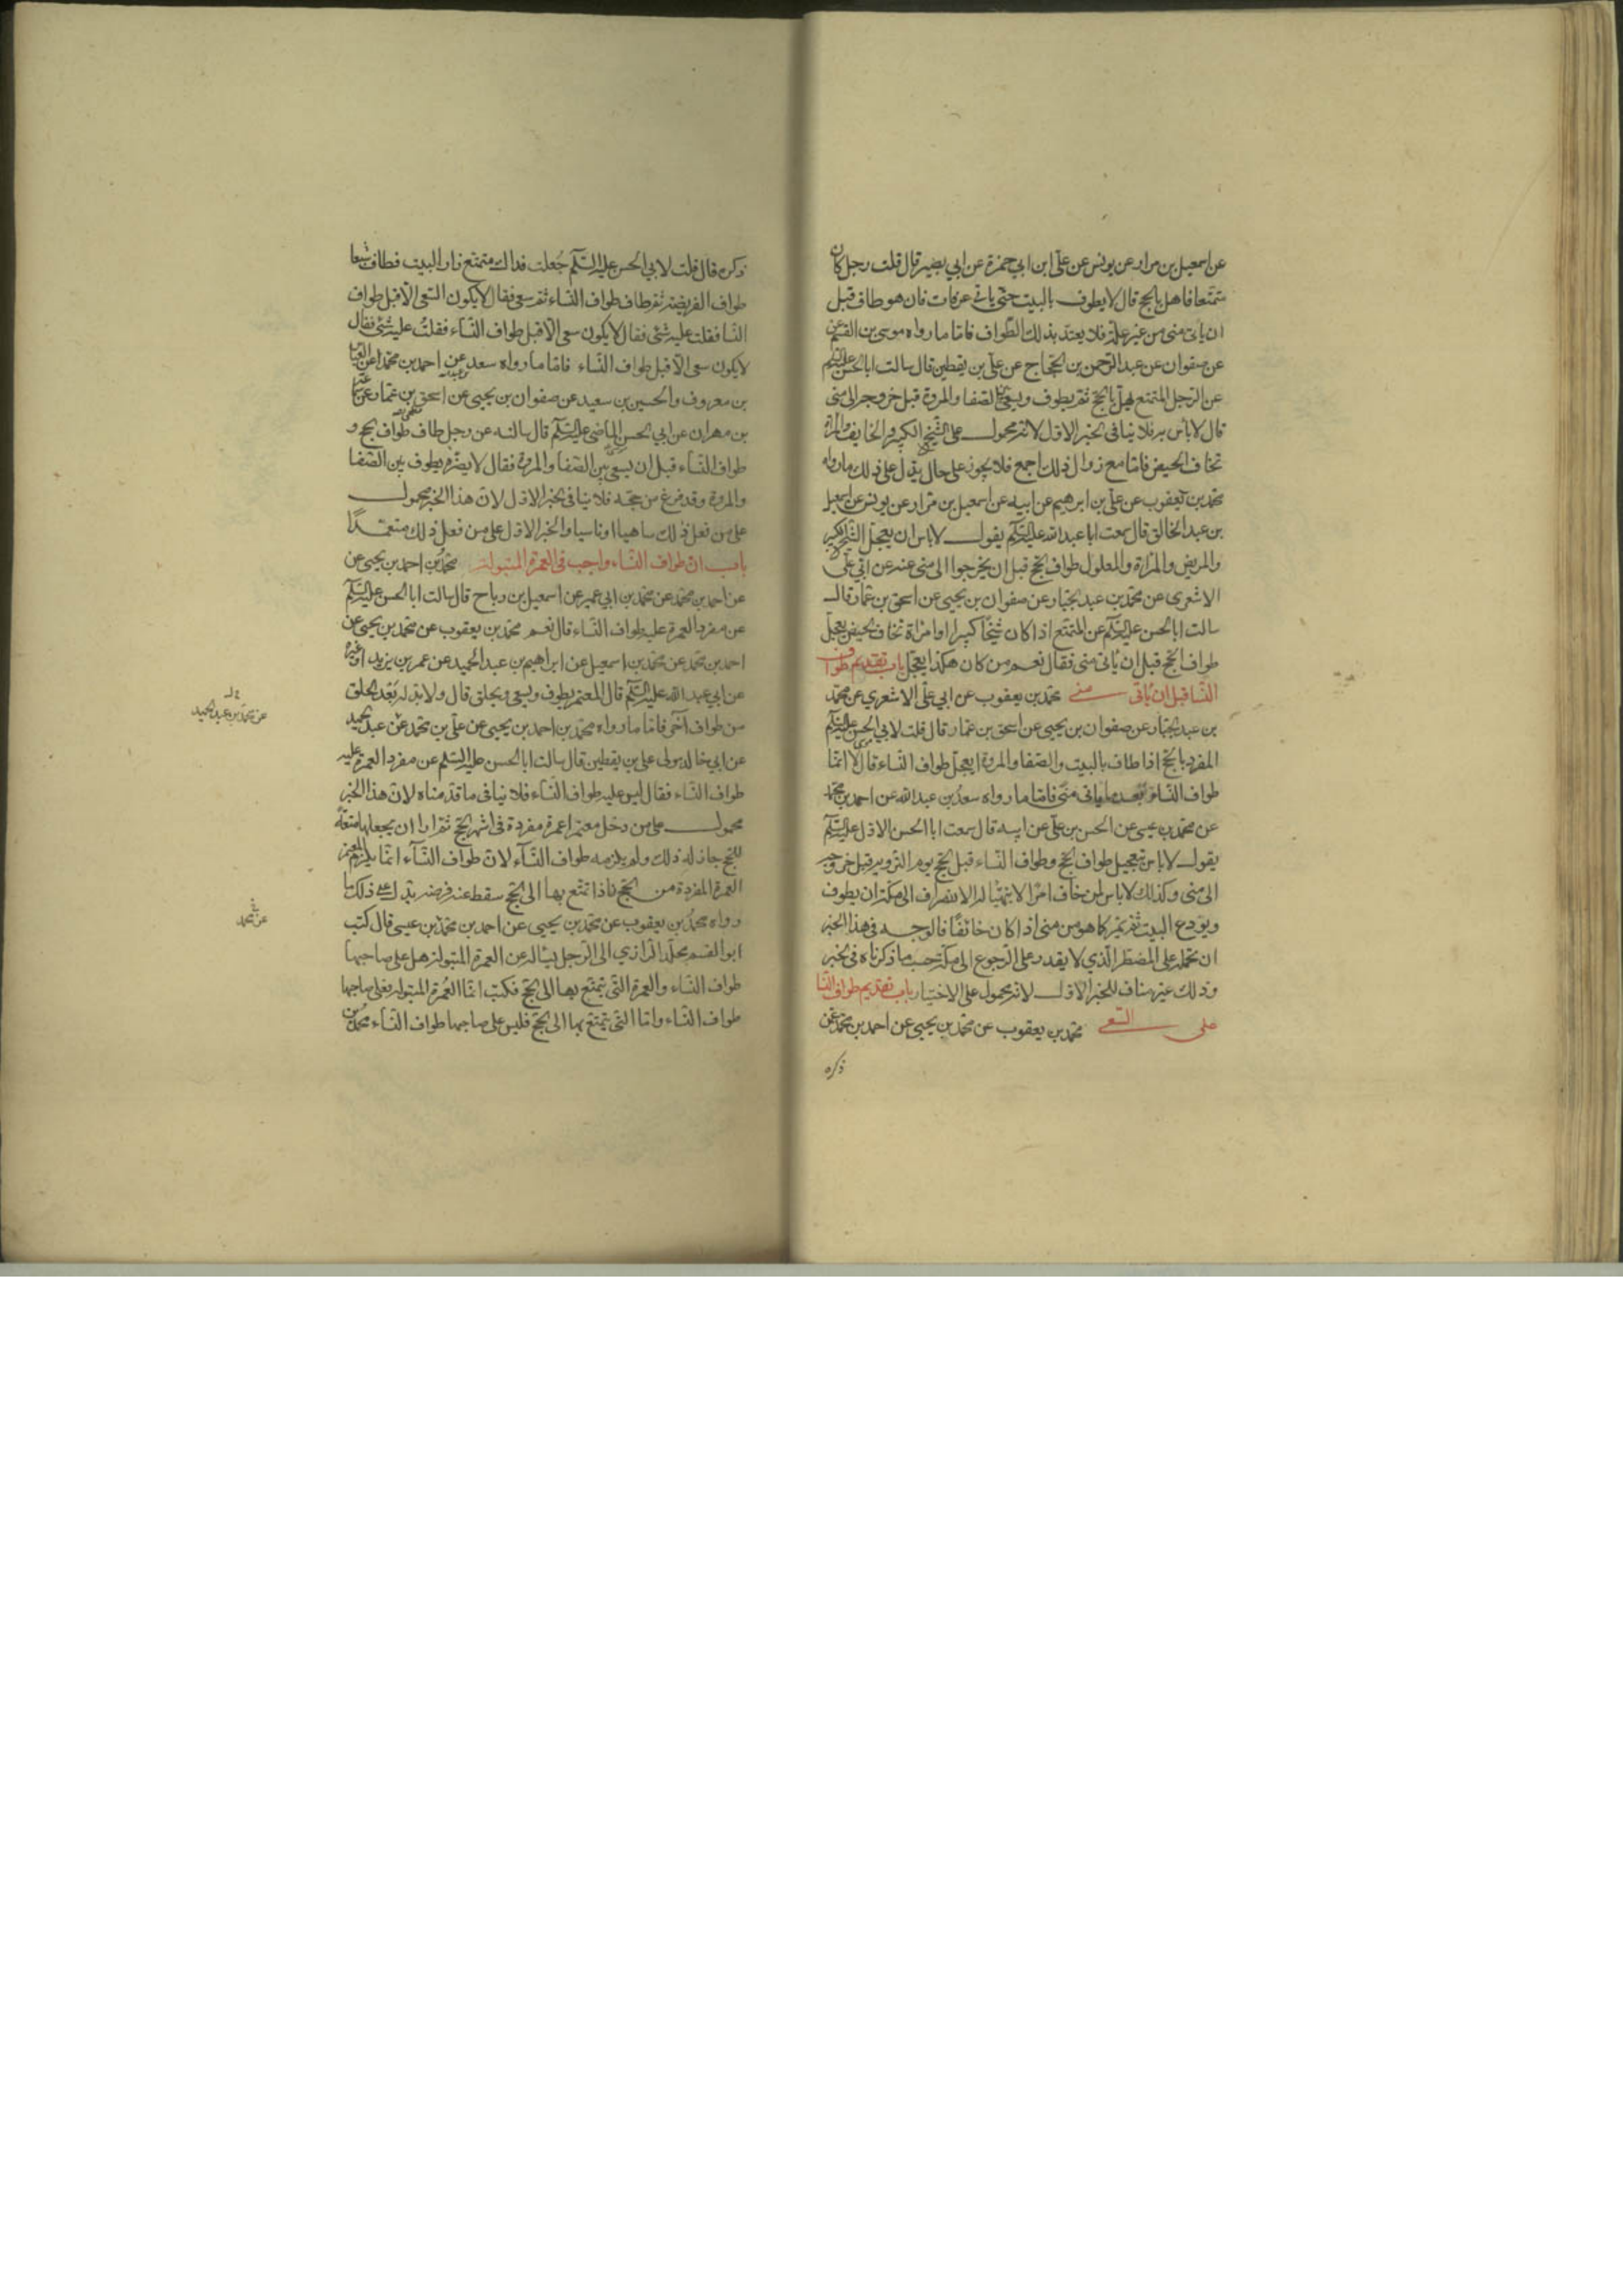 عن اسمعيل بن مرار عن يونس عن علي ابن ابي حمزة عن ابي بصير قال قلت رجل كان
متمتعا فاهل بالحج قال لا يطوف بالبيت حتى ياتي عرفات فان هو طاف قبل
ان ياتي منى من غير علة فلا يعتد بذلك الطواف فاما ما رواه موسى بن القسم عن
عن صفوان عن عبد الرحمن بن الحجاج عن علي بن يقطين قال سالت ابا الحسن عليه السلم
عن الرجل المتمتع يهل بالحج ثم يطوف ويسعى بين الصفا والمروة قبل خروجه الى منى
قال لا باس به فلا ينافي الخبر الاول لانه محمول على الشيخ الكبير والخايف والمراة
تخاف الحيض فاما مع زوال ذلك اجمع فلا يجوز على حال يدل على ذلك ما رواه
محمد بن يعقوب عن علي بن ابرهيم عن ابيه عن اسمعيل بن مرار عن يونس عن اسمعيل
بن عبد الخالق قال سمعت ابا عبد الله عليه السلم يقول لا باس ان يعجل الشيخ الكبير
والمريض والمراة والمعلول طواف الحج قبل ان يخرجوا الى منى عنه عن ابي علي
الاشعري عن محمد بن عبد الجبار عن صفوان بن يحيى عن اسحق بن عمار قال
سالت ابا الحسن عليه السلم عن المتمتع اذا كان شيخا كبيرا او امراة تخاف الحيض يعجل
طواف الحج قبل ان ياتي منى فقال نعم من كان هكذا يعجل باب تقديم طواف
النسا قبل ان ياتي منى محمد بن يعقوب عن ابي علي الاشعري عن محمد
بن عبد الجبار عن صفوان بن يحيى عن اسحق بن عمار قال قلت لابي الحسن عليه السلم
المفرد بالحج اذا طاف بالبيت والصفا والمروة ايعجل طواف النساء قال لا انما
طواف النساء بعد ما ياتي منى فاما ما رواه سعد بن عبد الله عن احمد بن محمد
عن محمد بن يحيى عن الحسن بن علي عن ابيه قال سمعت ابا الحسن الاول عليه السلم
يقول لا باس بتعجيل طواف الحج وطواف النساء قبل الحج يوم التروية قبل خروجه
الى منى وكذلك لا باس لمن خاف امرا لا يتهيا له الانصراف الى مكة ان يطوف
ويودع البيت ثم يمر كما هو من منى اذا كان خائفا فالوجه في هذا الخبر
ان نحمله على المضطر الذي لا يقدر على الرجوع الى مكة حسب ما ذكرناه في الخبر
وذلك غير مناف للخبر الاول لانه محمول على الاختيار باب تقديم طواف النسا
على السعي محمد بن يعقوب عن محمد بن يحيى عن احمد بن محمد عن
ذكره
ذكره قال قلت لابي الحسن عليه السلم جعلت فداك متمتع زار البيت فطاف
طواف الفريضة ثم طاف طواف النساء ثم سعى فقال لا يكون السعي الا قبل طواف
النسا فقلت عليه شئ فقال لا يكون سعى الا قبل طواف النساء فقلت عليه شئ فقال
لا يكون سعى الا قبل طواف النساء فاما ما رواه سعد عن احمد بن محمد عن العباس
بن معروف والحسين بن سعيد عن صفوان بن يحيى عن اسحق بن عمار عن سماعة
بن مهران عن ابي الحسن الماضي عليه السلم قال سالته عن رجل طاف طواف الحج و
طواف النساء قبل ان يسعى بين الصفا والمروة فقال لا يضره يطوف بين الصفا
والمروة وقد فرغ من حجه فلا ينافي الخبر الاول لان هذا الخبر محمول
على من فعل ذلك ساهيا او ناسيا والخبر الاول على من فعل ذلك متعمدا
باب ان طواف النساء واجب في العمرة المبتولة محمد بن احمد بن يحيى عن
عن احمد بن محمد عن محمد بن ابي عمير عن اسمعيل بن رباح قال سالت ابا الحسن عليه السلم
عن مفرد العمرة عليه طواف النساء قال نعم محمد بن يعقوب عن محمد بن يحيى عن
احمد بن محمد عن محمد بن اسمعيل عن ابراهيم بن عبد الحميد عن عمر بن يزيد او غيره
عن ابي عبد الله عليه السلم قال المعتمر يطوف ويسعى ويحلق قال ولا بد له بعد الحلق
من طواف آخر فاما ما رواه محمد بن احمد بن يحيى عن علي بن محمد عن عبد الحميد
عن ابي خالد مولى علي بن يقطين قال سالت ابا الحسن عليه السلم عن مفرد العمرة عليه
طواف النساء فقال ليس عليه طواف النساء فلا ينافي ما قدمناه لان هذا الخبر
محمول على من دخل معتمرا عمرة مفردة في اشهر الحج ثم اراد ان يجعلها متعة
للحج جاز له ذلك ولم يلزمه طواف النساء لان طواف النساء انما يلزم المعتمر
العمرة المفردة من الحج فاذا تمتع بها الى الحج سقط عنه فرضه يدل على ذلك ما
رواه محمد بن يعقوب عن محمد بن يحيى عن احمد بن محمد بن عيسى قال كتب
ابو القسم مخلد الرازي الى الرجل يساله عن العمرة المبتولة هل على صاحبها
طواف النساء والعمرة التي يتمتع بها الى الحج فكتب اما العمرة المبتولة فعلى صاحبها
طواف النساء واما التي يتمتع بها الى الحج فليس على صاحبها طواف النساء محمد بن
عن محمد بن عبد الحميد
عن محمد